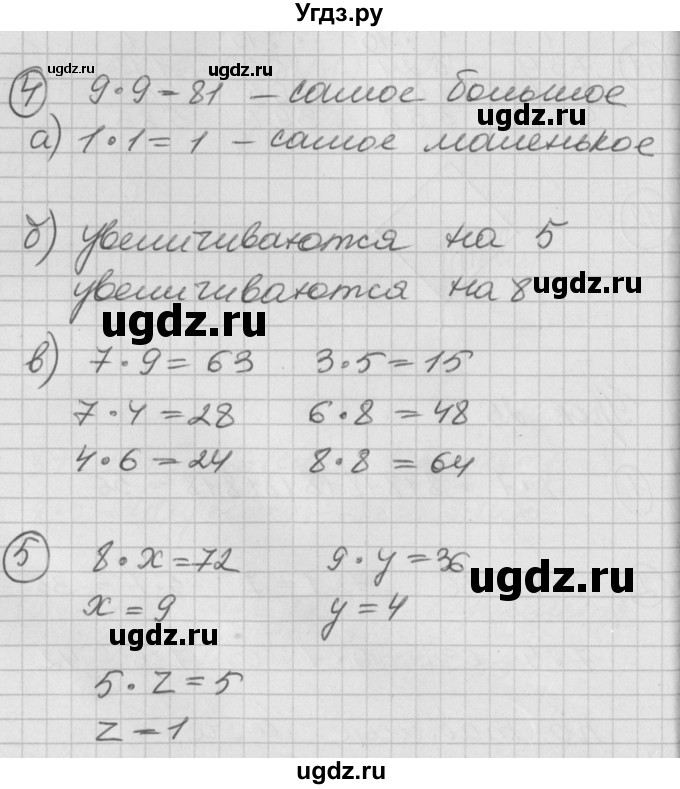 Угдз.ру
ugdz.ru ugdz.ru
4 9·9=81 – самое большое
ugdz.ru
а) 1·1=1 – самое маленькое
б) увеличиваются на 5
увеличиваются на 8
ugdz.ru ugdz.ru
в) 7·9=63 3·5=15
7·4=28 6·8=48
4·6=24 8·8=64
5 8·x=72 9·y=36
ugdz.ru
x=9 y=4
ugdz.ru
5·z=5
z=1
ugdz.ru